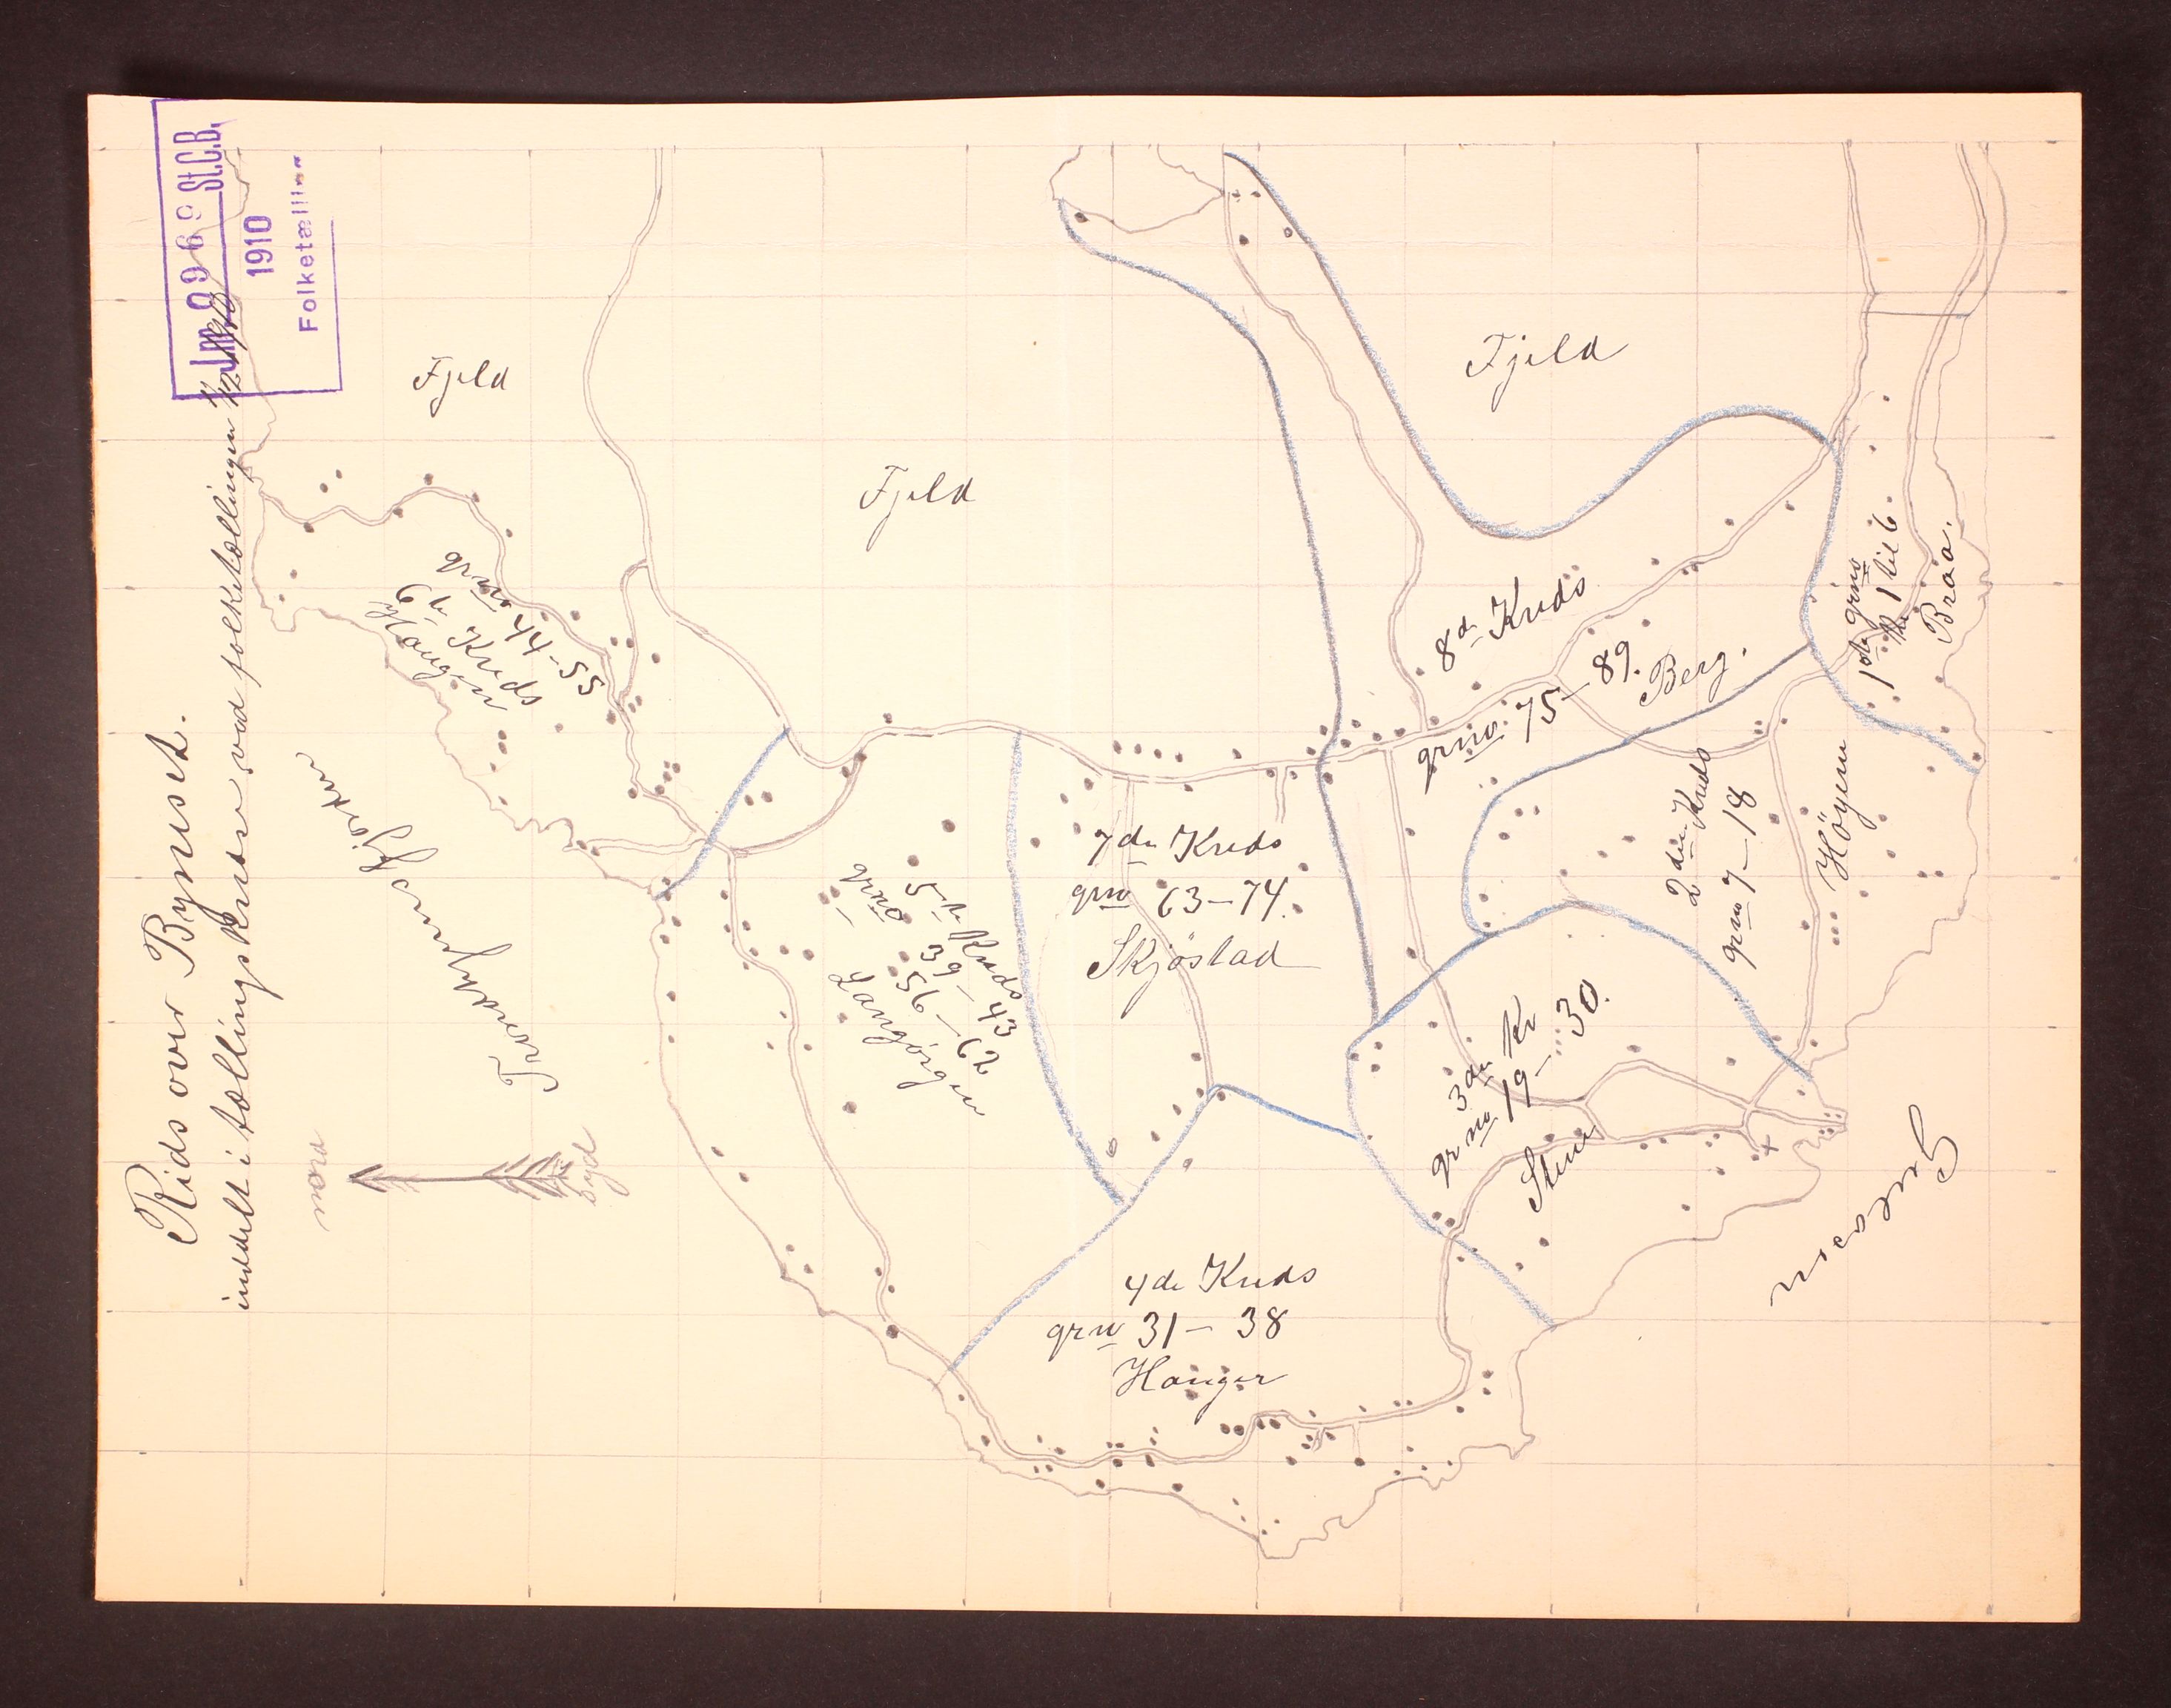 Rids over Bynesset.
inddelt i tællingskredse ved folketællingen 1/12 1910
Jnr. 0969 St.C.B.
1910
Folketælling
nord
syd
Trondhjemsfjorden
Gulosen
Fjeld
Fjeld
Fjeld
1ste grno
1 til 6.
Braa.
2den Kreds
grno 7–18
Höyem
3die Kr
grno 19–30.
Stene
4de Kreds
grno 31–38
Hangер
5te Kreds
grno 39–43
56–62
Langörgen
6te Kreds
grno 44–55
7de Kreds
grno 63–74.
Skjöstad
8de Kreds
grno. 75–89.
Berg.